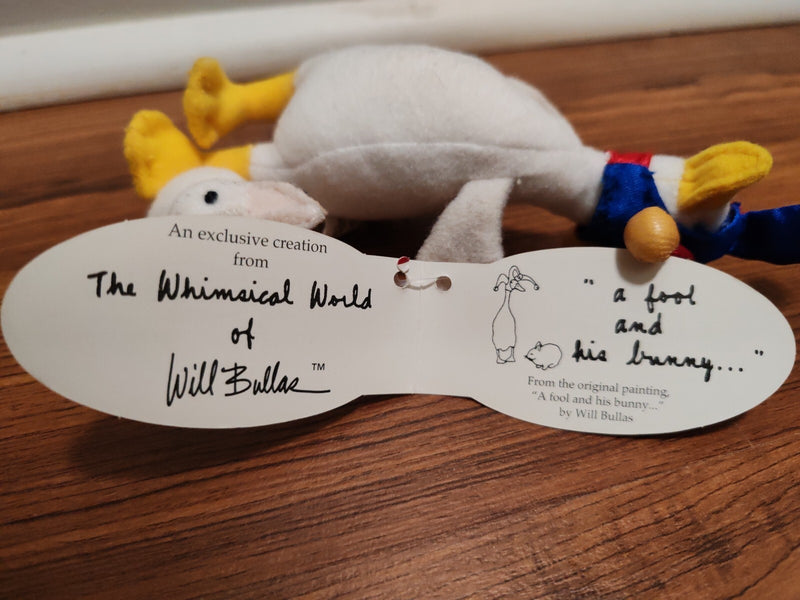 An exclusive creation
from
The Whimsical World
of
Will Bullas™
" a fool
and
his bunny... "
From the original painting,
"A fool and his bunny..."
by Will Bullas